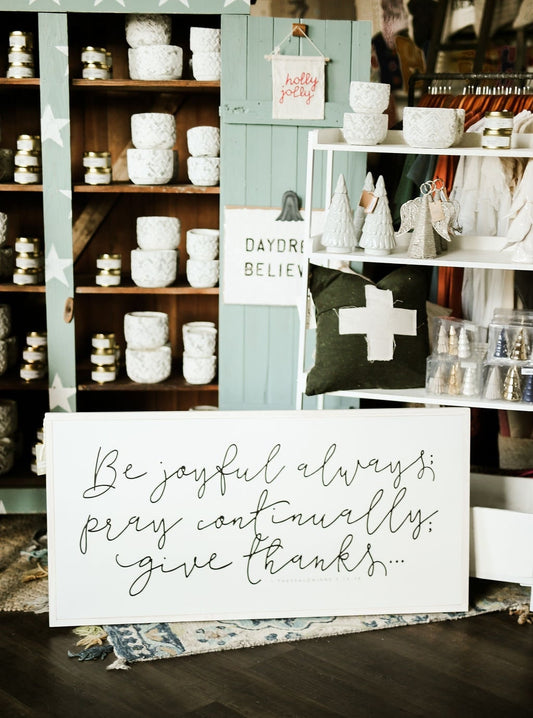 holly
jolly
DAYDRE
BELIEV
Be joyful always;
pray continually;
give thanks...
1 THESSALONIANS 5:16-18